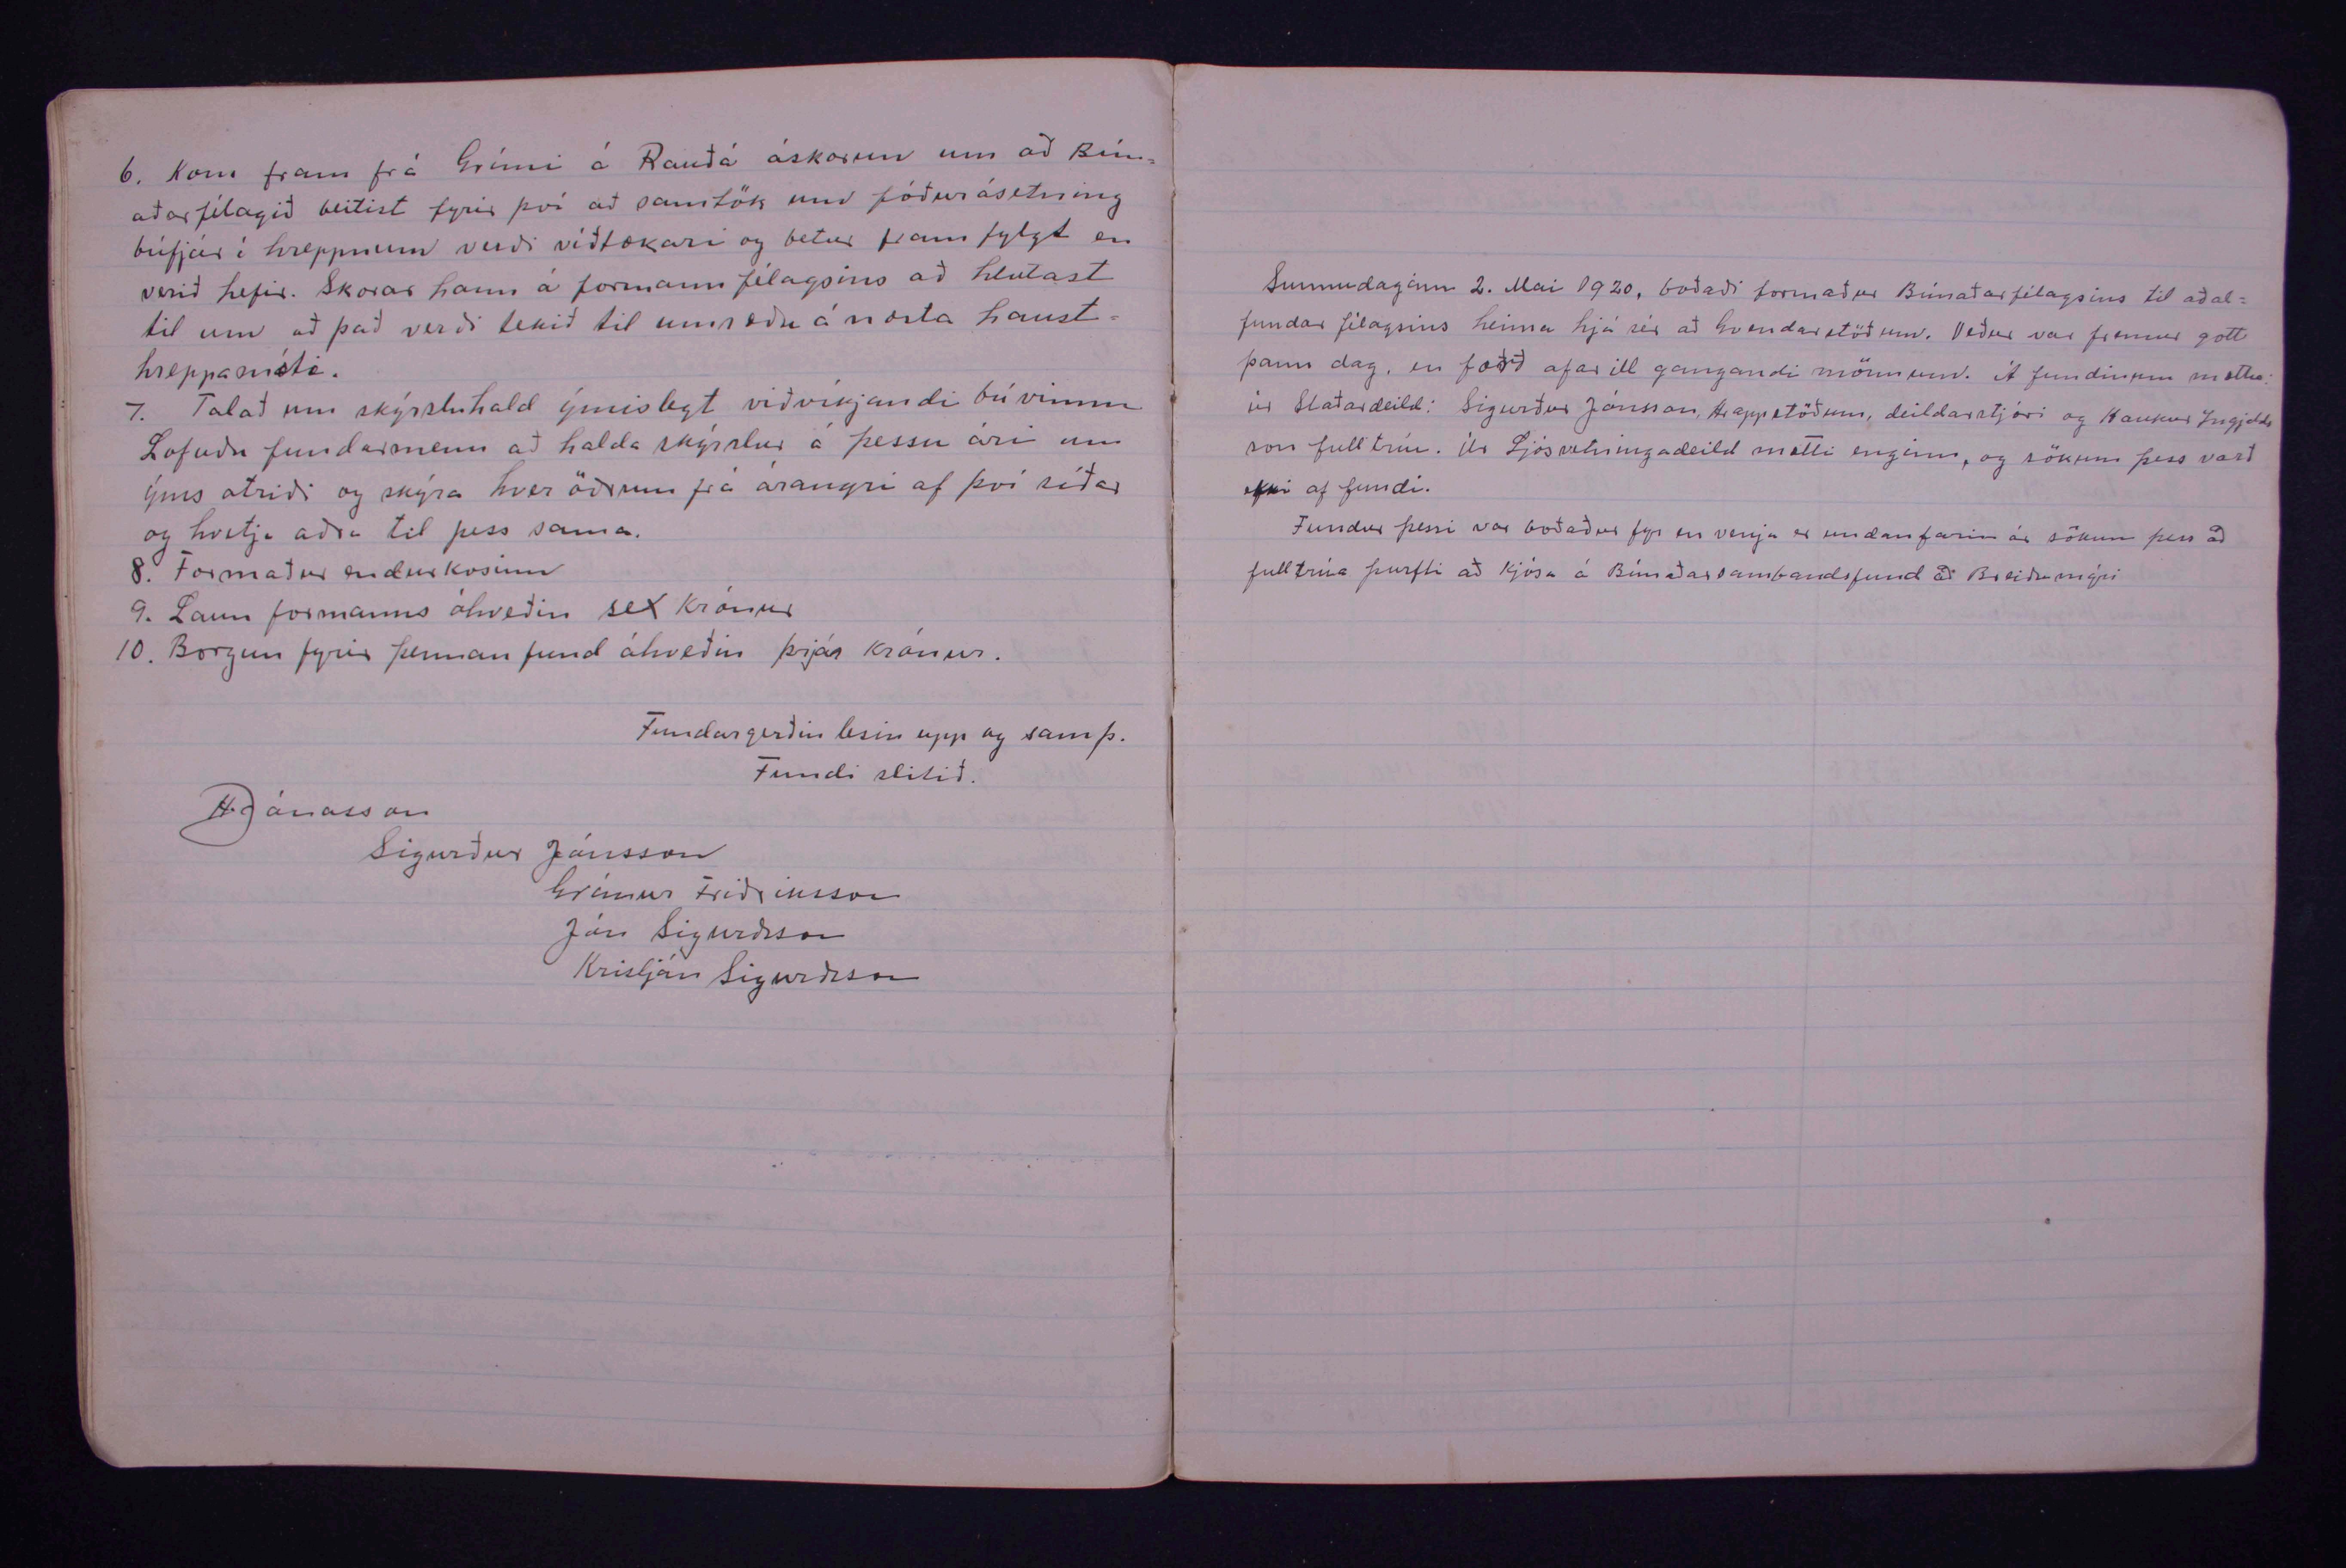 6. Kom fram frá Grími á Rauðá áskorun um að Bún=
aðarfélagið beitist fyrir því að samtök um fóðurásetning
búfjár í hreppnum verði víðtækari og betur fram fylgt en
verið hefir. Skorar hann á formann félagsins að hlutast
til um að það verði tekið til umræðu á næsta haust-
hreppamóti.
7. Talað um skýrsluhald ýmislegt viðvíkjandi búvinnu
Lofuðu fundarmenn að halda skýrslur á þessu ári um
ýms atriði og skýra hver öðrum frá árangri af því síðar
og hvetja aðra til þess sama.
8. Formaður endurkosinn
9. Laun formanns ákveðin sex krónur
10. Borgun fyrir þennan fund ákveðin þrjár krónur.
Fundargerðin lesin upp og samþ.
Fundi slitið.
H Jónasson
Sigurður Jónsson
Grímur Friðriksson
Jón Sigurðsson
Kristján Sigurðsson
Sunnudaginn 2. Mai 1920, boðaði formaður Búnaðarfélagsins til aðal=
fundar félagsins heima hjá sér að Hvendarstöðum. Veður var fremur gott
þann dag, en færð afar ill gangandi mönnum. Á fundinum mættu:
úr Staðardeild: Sigurður Jónsson, Hrappstöðum, deildarstjóri og Haukur Ingjalds
son fulltrúi. Úr Ljósvetningadeild mætti enginn, og sökum þess varð
ekki af fundi.
Fundur þessi var boðaður fyr en venja er undanfarin ár sökum þess að
fulltrúa þurfti að kjósa á Búnaðarsambandsfund að Breiðumýri